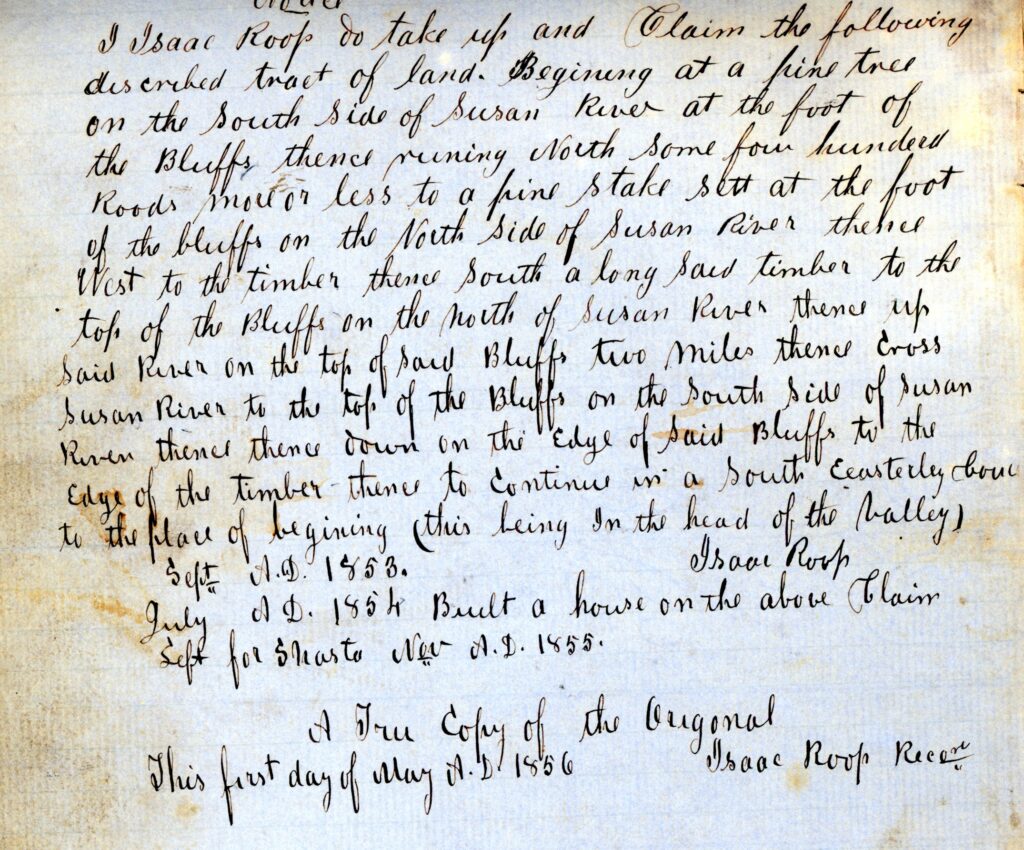 I Isaac Roop do take up and Claim the following
described tract of land. Begining at a pine tree
on the South Side of Susan River at the foot of
the Bluffs thence runing North Some four hunderd
Roods more or less to a pine Stake Sett at the foot
of the bluffs on the North Side of Susan River thence
West to the timber thence South a long Said timber to the
top of the Bluffs on the north of Susan River thence up
Said River on the top of Said Bluffs two miles thence Cross
Susan River to the top of the Bluffs on the South Side of Susan
River thence thence down on the Edge of Said Bluffs to the
Edge of the timber thence to Continue in a South Eeasterley
to the place of begining (this being In the head of the Valley)
Sept A.D. 1853. Isaac Roop
July A D. 1854 Built a house on the above Claim
for Shasta Nov A.D. 1855.
A Tru Copy of the Origonal
This first day of May A.D. 1856 Isaac Roop